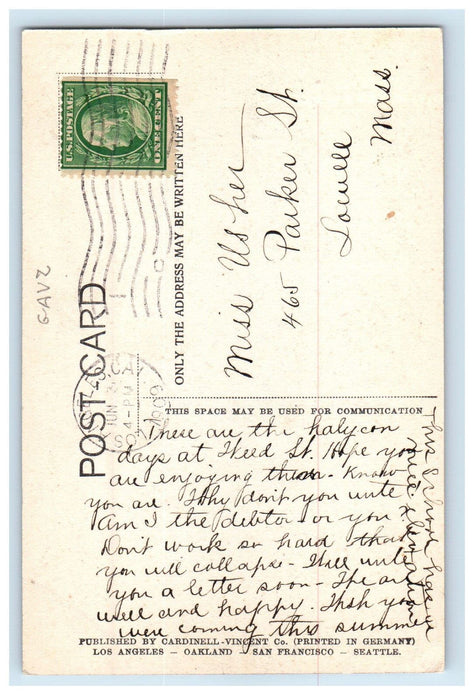 U.S. POSTAGE
ONE CENT
GAVZ
POST CARD
ONLY THE ADDRESS MAY BE WRITTEN HERE
CAL.
JUN
4-PM
1909
Miss Usher
465 Parker St.
Lowell
Mass.
THIS SPACE MAY BE USED FOR COMMUNICATION
These are the halycon
days at Weed St. Hope you
are enjoying them - Know
you are. Why don't you write
Am I the debtor or you
Don't work so hard that
you will collapse - Will write
you a letter soon - We are
well and happy. Wish you
were coming this summer
This School here is
nice
PUBLISHED BY CARDINELL-VINCENT CO. (PRINTED IN GERMANY)
LOS ANGELES – OAKLAND – SAN FRANCISCO – SEATTLE.